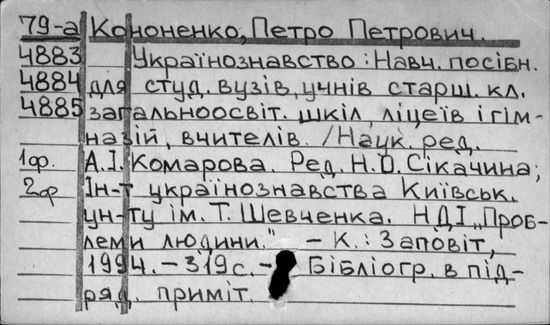 79-а Кононенко, Петро Петрович.
4883 Українознавство : Навч. посібн.
4884 для студ. вузів, учнів старш. кл.
4885 загальноосвіт. шкіл, ліцеїв і гім-
назій, вчителів. /Наук. ред.
1ф. А.І. Комарова. Ред. Н.О. Сікачина;
2ф Ін-т українознавства Київськ.
ун-ту ім. Т. Шевченка. НДІ „Проб-
леми людини." – К. : Заповіт,
1994. – 319 с. – Бібліогр. в під-
ряд. приміт.